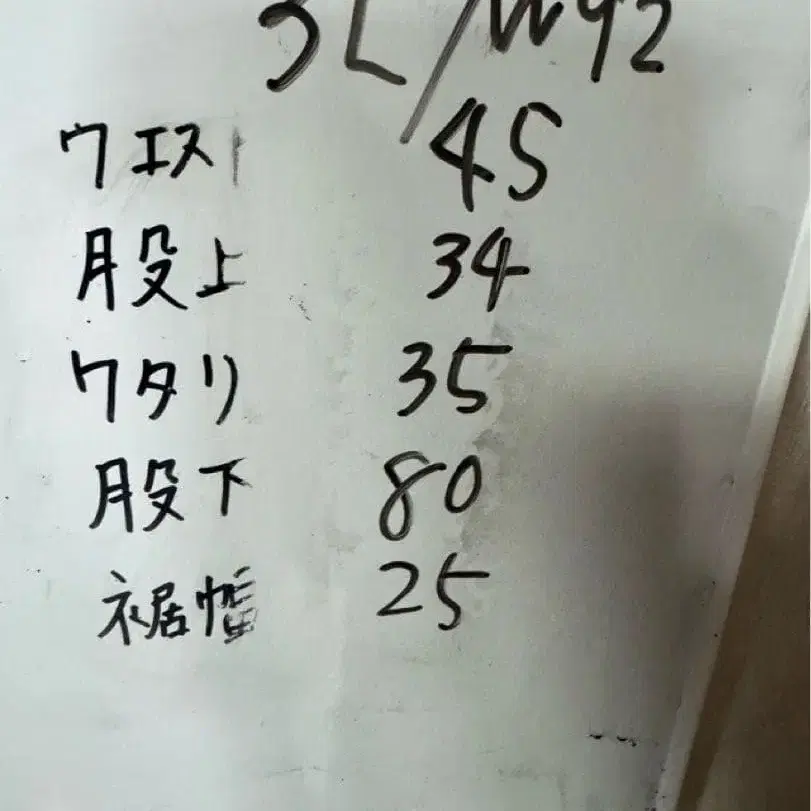 3L/W42
ウエスト 45
股上 34
ワタリ 35
股下 80
裾幅 25